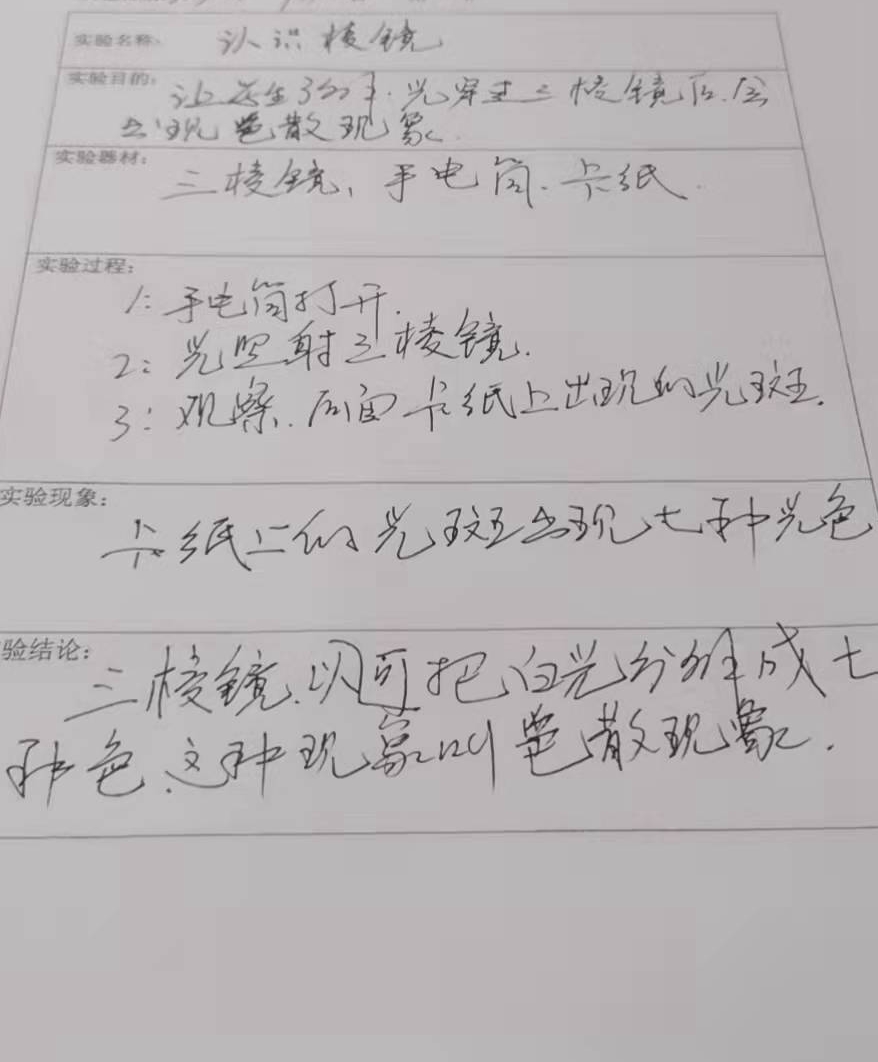 实验名称: 认识棱镜
实验目的: 让学生了解. 光穿过三棱镜后.会
出现色散现象.
实验器材:
三棱镜, 手电筒. 卡纸.
实验过程:
1: 手电筒打开.
2: 光照射三棱镜.
3: 观察. 后面卡纸上出现的光斑.
实验现象:
卡纸上的光斑出现七种光色
验结论:
三棱镜.以可把白光分解成七
种色.这种现象叫色散现象.